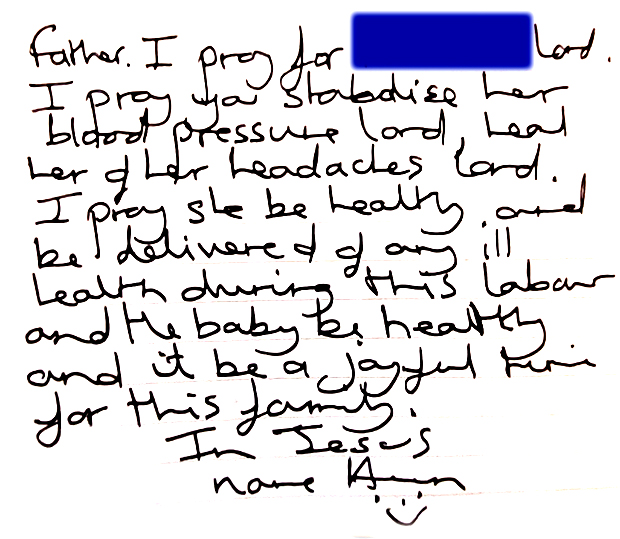 Father. I pray for lord.
I pray you stabalise her
blood pressure lord, heal
her of her headaches lord.
I pray she be healthy and
be delivered of any ill
health during this labour
and the baby be healthy
and it be a joyful time
for this family.
In Jesus
name Amen